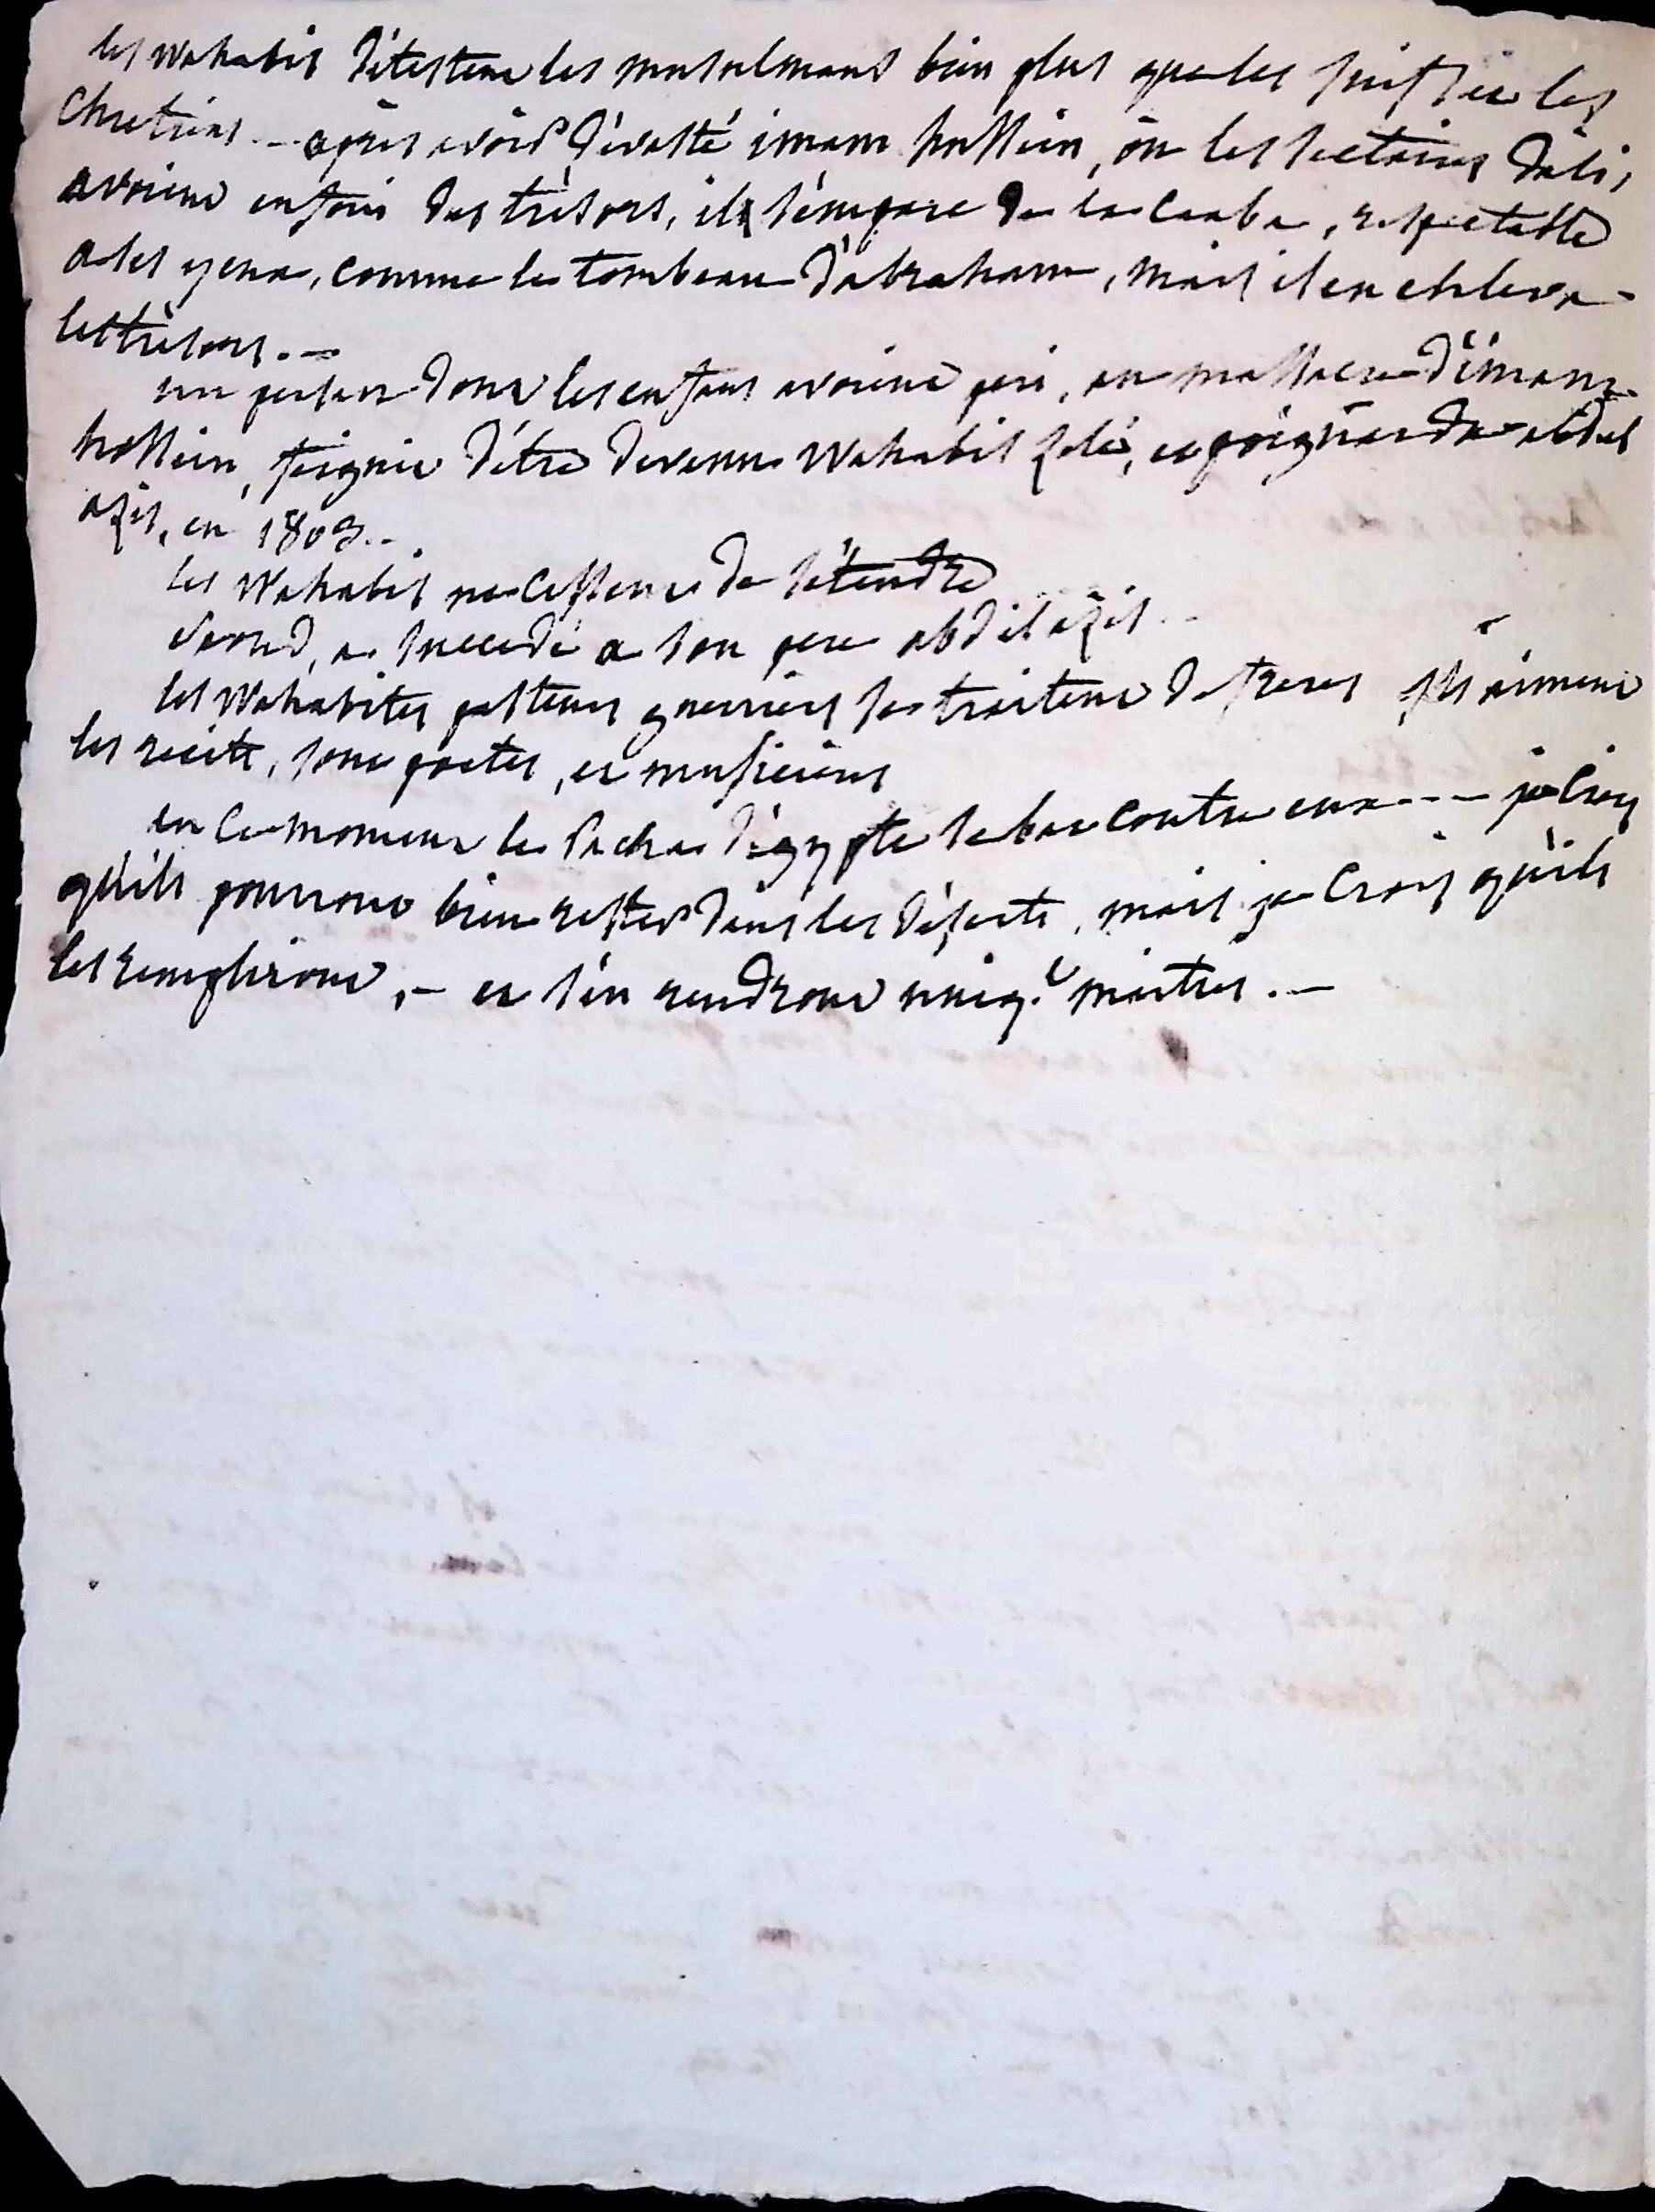 les wahabis détestent les musulmans bien plus que les juifs et les
chretiens. - après avoir dévasté imam hossein, où les sectaires d'ali,
avoient enfoui des trésors, il s'empare de la caaba, respectable
a ses yeux, comme le tombeau d'abraham, mais il en enleva
les trésors. -
un persan dont les enfans avoient peri, au massacre d'imam
hossein, feignit d'être devenu wahabis zélé, et poignarda abdel
azis, en 1803. -
les wahabis ne cessent de s'étendre
seoud, a succedé a son pere abdelazis. -
les wahabites pasteurs guerriers se traitent de freres, ils aiment
les recits, sont poetes, et musiciens
en ce moment le pacha d'égypte se bat contre eux - - - je crois
qu'ils pourront bien rester dans les déserts, mais je crois qu'ils
les rempliront, - et s'en rendront uniqt maitres. -